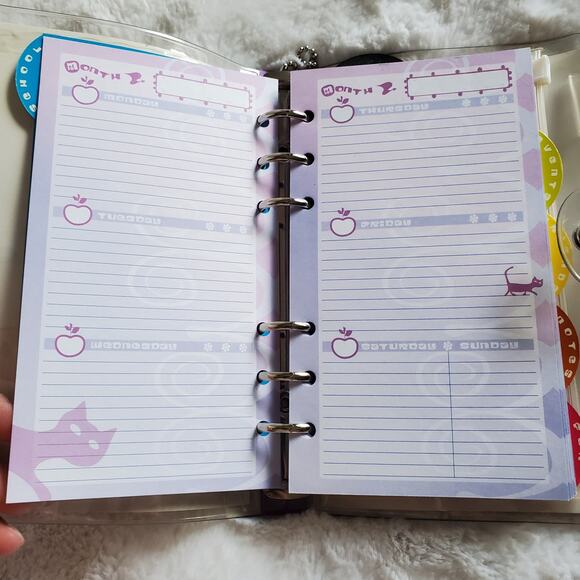 School
Month
Monday
Tuesday
Wednesday
Month
Thursday
Friday
Saturday Sunday
Events
Notes